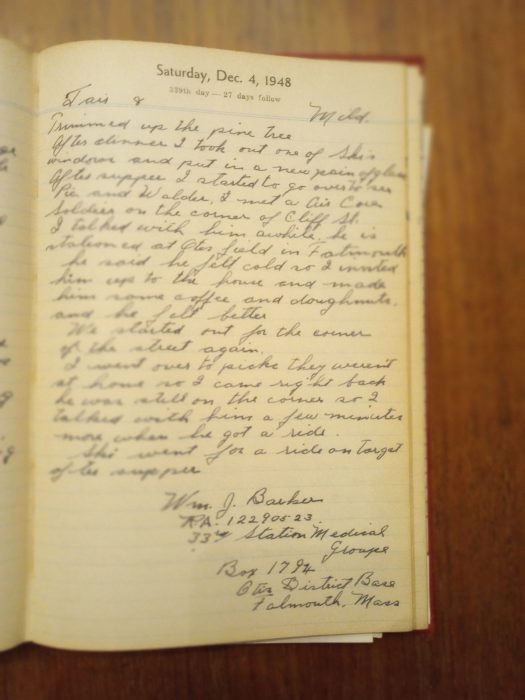 Saturday, Dec. 4, 1948
339th day — 27 days follow
Fair & Mild.
Trimmed up the pine tree
After dinner I took out one of Skis
windows and put in a new pain of glass
After supper I started to go over to see
Pic and Walder, I met a Air Corps
Soldier on the corner of Cliff St.
I talked with him awhile, he is
stationed at Otis field in Falmouth
he said he felt cold so I invited
him up to the house and made
him some coffee and doughnuts.
and he felt better
We started out for the corner
of the street again.
I went over to Picks they weren't
at home so I came right back
he was still on the corner so I
talked with him a few minutes
more when he got a ride.
Ski went for a ride on Target
after supper
Wm. J. Barker
RA. 12290523
33rd Station Medical
Groupe
Box 1794
Otis District Base
Falmouth, Mass